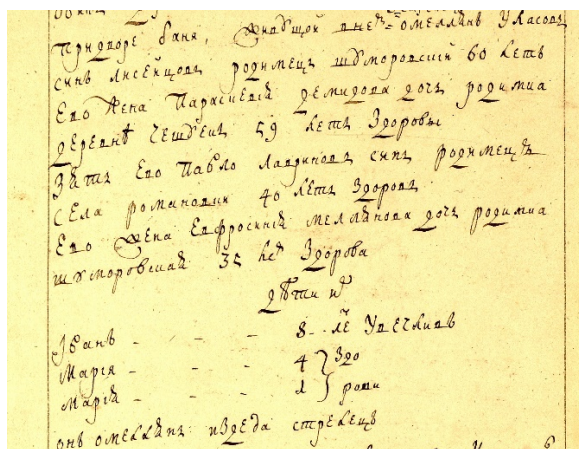 придворе баня, живущой внем омеллянъ уласовъ
синъ лисейцовъ родимецъ шуморовскїй 60 летъ
Его жена Параскевїя демидова дочъ родимца
деревнѣ 59 летъ Здорова
Зять Его Павло лавриновъ синъ родимецъ
села романовки 40 летъ Здоровъ
Его жена Евфросинїя мелянова дочъ родимца
шуморовская 35 лет Здорова
дѣти их
Јванъ - - - 8 - ле Увечливъ
Марїя - - - 4 Здо
Марїя - - - 1 рови
онъ омелянъ издеда стрелецъ